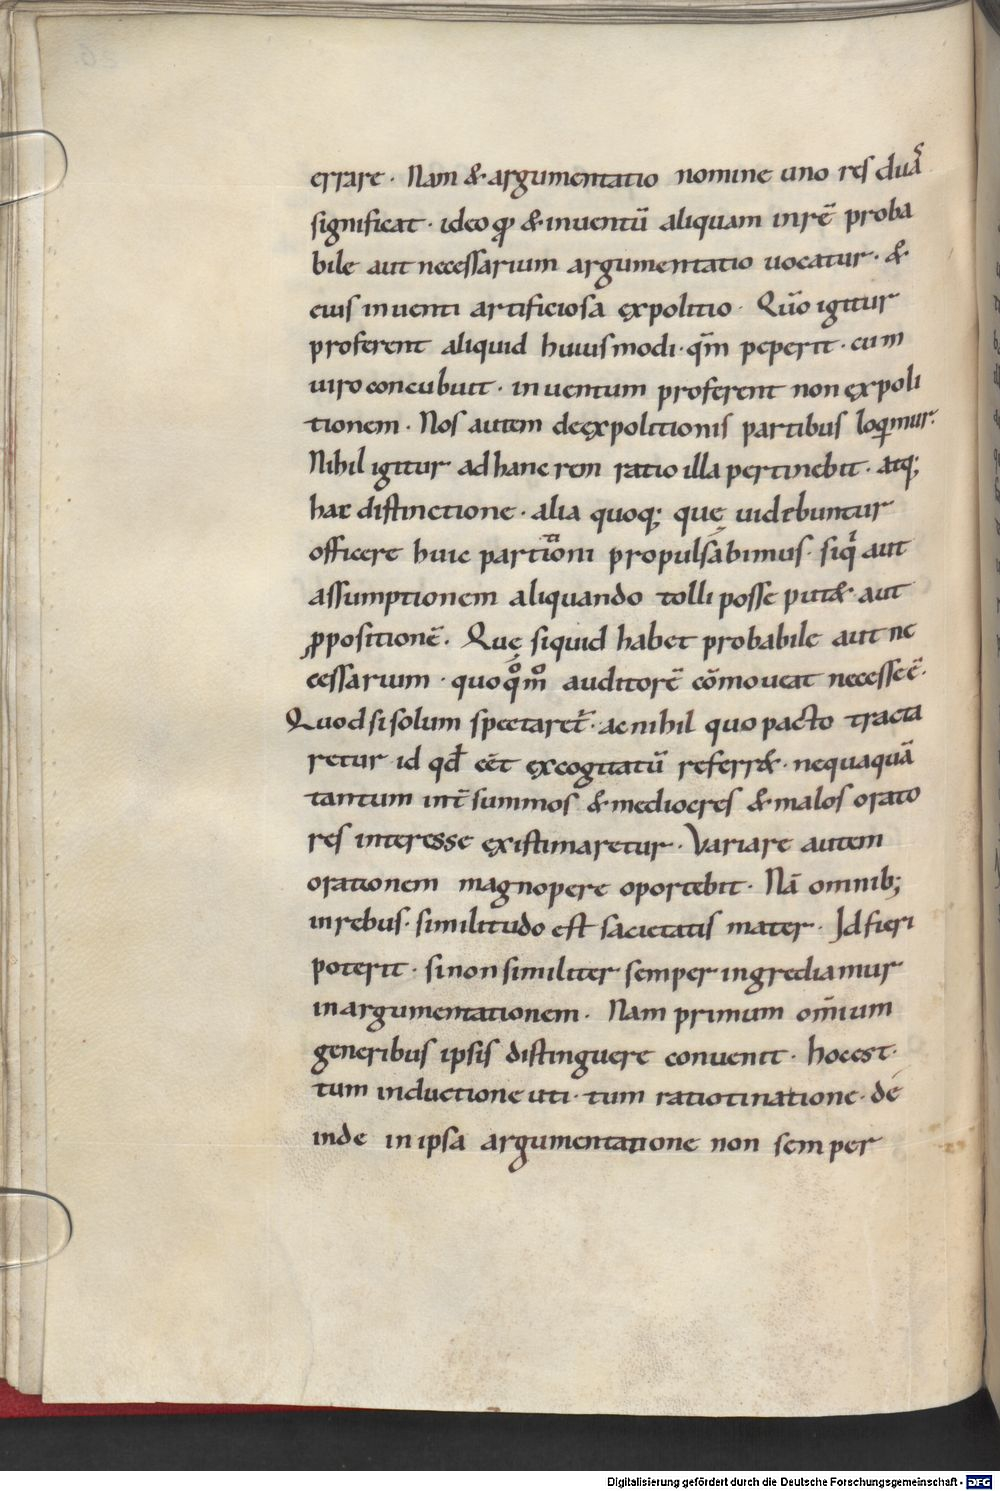 errare · Nam & argumentatio nomine uno res duas
significat · ideo qđ & inuentū aliquam inrē proba
bile aut necessarium argumentatio uocatur · &
eius inuenti artificiosa expolitio · Qūo igitur
proferent aliquid huiusmodi · qm̄ peperit · cum
uiro concubuit · inuentum proferent non expoli
tionem · Nos autem deexpolitionis partibus loqimur ·
Nihil igitur ad hanc rem ratio illa pertinebit · atq;
hac distinctione · alia quoq; quę uidebuntur
officere huic partitioni propulsabimus · siq¹ aut
assumptionem aliquando tolli posse put& · aut
ꝓpositionē · Quę siquid habet probabile aut ne
cessarium · quoq°m° auditorē cōmoueat necesse ē ·
Quod si solum spectaret̄ · ac nihil quo pacto tracta
retur id qđ eēt excogitatū referr& · nequaquā
tantum int̄ summos & mediocres & malos orato
res interesse existimaretur · Variare autem
orationem magnopere oportebit · Nā omnib;
in rebus · similitudo est sacietatis mater · Id fieri
poterit · si non similiter semper ingrediamur
in argumentationem · Nam primum om̄ium
generibus ipsis distinguere conuenit · hoc est ·
tum inductione uti · tum ratiotinatione · dé
inde in ipsa argumentatione non semper
Digitalisierung gefördert durch die Deutsche Forschungsgemeinschaft - DFG